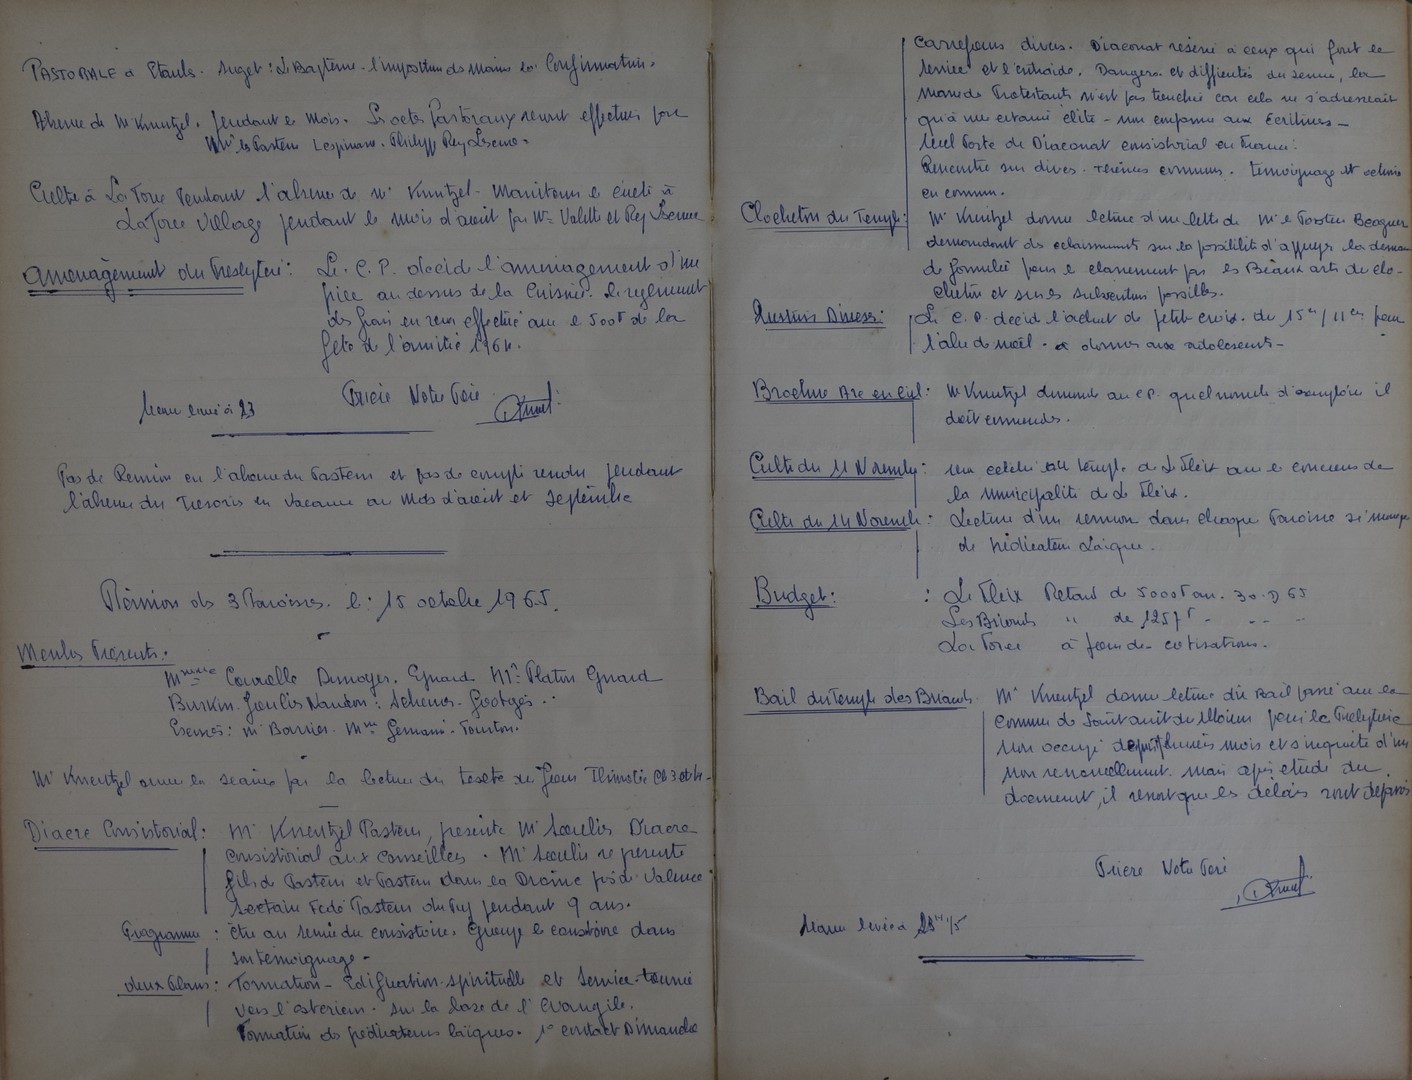 PASTORALE à Etauls. Suget : Le Baptême - l'imposition des mains la Confirmation.
Absence de Mr Knentzel. pendant le Mois. Les actes Pastoraux seront effectués par
Mrs les Pasteurs Lespinasse. Philipp Rey Lescure.
Culte à La Force Pendant l'absence de Mr Knentzel. Maintenu le culte à
La Force Village pendant le mois d'août par Mrs Valette et Rey Lescure
Amenagement du Presbytère : Le C.P. décide l'aménagement d'une
pièce au dessus de la Cuisine. le règlement
des frais en sera effectué avec le 500F de la
fête de l'amitié 1964.
Séance levée à 23 Prière Notre Père
Pas de Réunion en l'absence du Pasteur et pas de compte rendu pendant
l'absence du Tresorier en vacance au Mois d'août et Septembre
Réunion des 3 Paroisses. le : 15 octobre 1965.
Membres Présents :
Mmes Courelle Dumoyer. Eynard Mrs Platon Eynard
Burkin. Georges..
Excusés : Mr Barrier. Mme Germain - Tourton.
Mr Knentzel ouvre la séance par la lecture du texte de Thimotée Ch 3
Diacre Consistorial : Mr Knentzel Pasteur, présente Mr Diacre
Consistorial aux Conseillers. Mr se présente
fils de Pasteur et Pasteur dans la Drôme près de Valence
Pasteur du Puy pendant 9 ans.
Programme : Etre au service du consistoire. Groupe le consistoire dans
son témoignage -
deux Plans : Formation - Edification spirituelle et Service tourné
vers l'exterieur. sur la base de l'Evangile.
Formation des prédicateurs laïques. 1er contact Dimanche
Carrefours divers. Diaconat réservé à ceux qui font le
service et l'entraide. Dangers et difficultés du service, la
masse des Protestants n'est pas touchée car cela ne s'adresserait
qu'à une certaine élite - non conforme aux Ecritures -
Seul Poste de Diaconat consistorial en France.
Rencontre sur divers. terrains communs. témoignage et actions
en commun.
Clocheton du Temple : Mr Knentzel donne lecture d'une lettre de Mr le Pasteur
demandant des eclaircissements sur la possibilité d'appuyer la deman
de formulée pour le classement par les Beaux arts du clo-
cheton et sur les subventions possibles.
Questions Diverses : Le C.P. décide l'achat de petite croix. de 15 m/ 11 m pour
l'arbre de noël. à donner aux adolescents -
Brochure Arc en Ciel : Mr Knentzel demande au C.P. quel nombre d'exemplaires il
doit commander.
Culte du 11 Novembre : sera célébré au temple de Le Fleix avec le concours de
la municipalité de Le Fleix.
Culte du 14 Novembre : Lecture d'un sermon dans chaque Paroisse si manque
de Prédicateur Laïque.
Budget : : Le Fleix Retard de 5000F au. 30.9 65
Les Briands " de 1257F - -- -
La Force à jour des cotisations.
Bail du Temple des Briands Mr Knentzel donne lecture du Bail passé avec la
Commune de Saint avit du Moiron pour le Presbytère
non occupé depuis plusieurs mois et s'inquiète d'un
non renouvellement. mais après étude du
document, il ressort que les délais sont dépassés
Prière Notre Père
Séance levée à 23H15